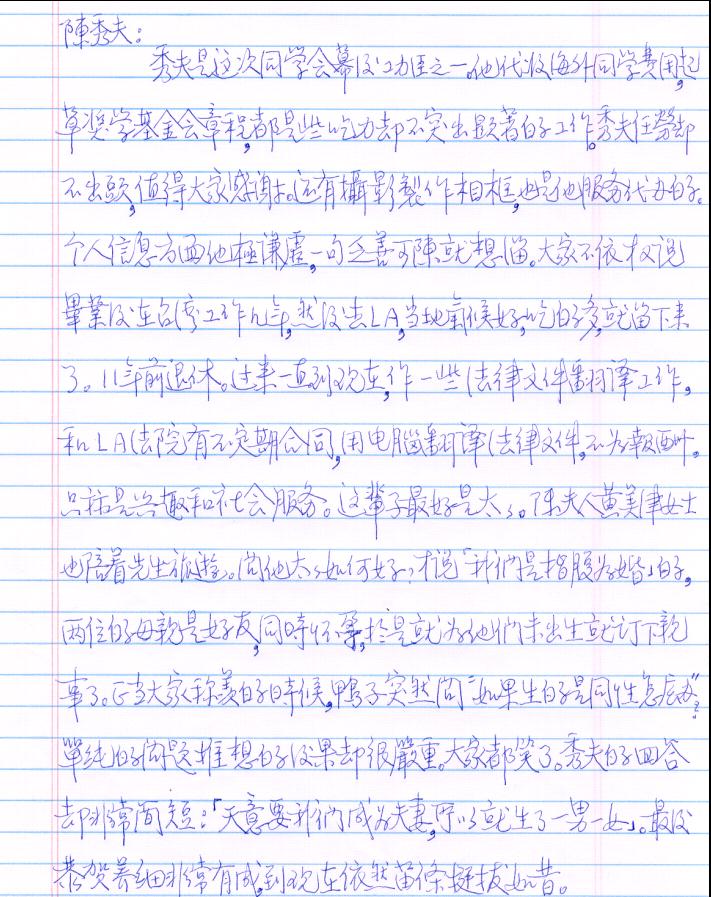 陳秀夫：
秀夫是这次同学会幕後功臣之一。他代收海外同学費用，起
草奨学基金会章程，都是些吃力却不突出顕著的工作。秀夫任勞却
不出頭，值得大家感謝。还有攝影製作相框，也是他服務代办的。
个人信息方面他極謙虛，一句乏善可陳就想溜。大家不依才说
畢業後在台湾工作几年，然後去LA，当地氣候好，吃的多，就留下来
了。11年前退休。过来一直到现在，作一些法律文件翻译工作，
和LA法院有不定期合同，用电腦翻译法律文件，不为報酬，
只祘是兴趣和社会服务。这輩子最好是太々。陳夫人黄美津女士
也陪着先生旅遊。问他太々如何好？才说「我們是指腹为婚」的，
两位的母親是好友，同時怀孕，於是就为他們未出生就订下親
事了。正当大家称羡的時候，鴨子突然问“如果生的是同性怎辰办”？
單純的问题推想的後果却很嚴重。大家都笑了。秀夫的回答
却非常简短：「天意要我們成为夫妻，所以就生了一男一女」。最後
恭贺养细非常有成，到现在依然苗條挺拔如昔。